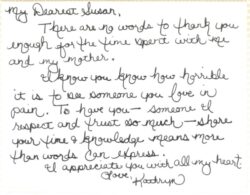 My Dearest Susan,
There are no words to thank you
enough for the time spent with me
and my mother.
I know you know how horrible
it is to see someone you love in
pain. To have you – someone I
respect and trust so much – share
your time & knowledge means more
than words can express.
I appreciate you with all my heart.
Love, Kathryn